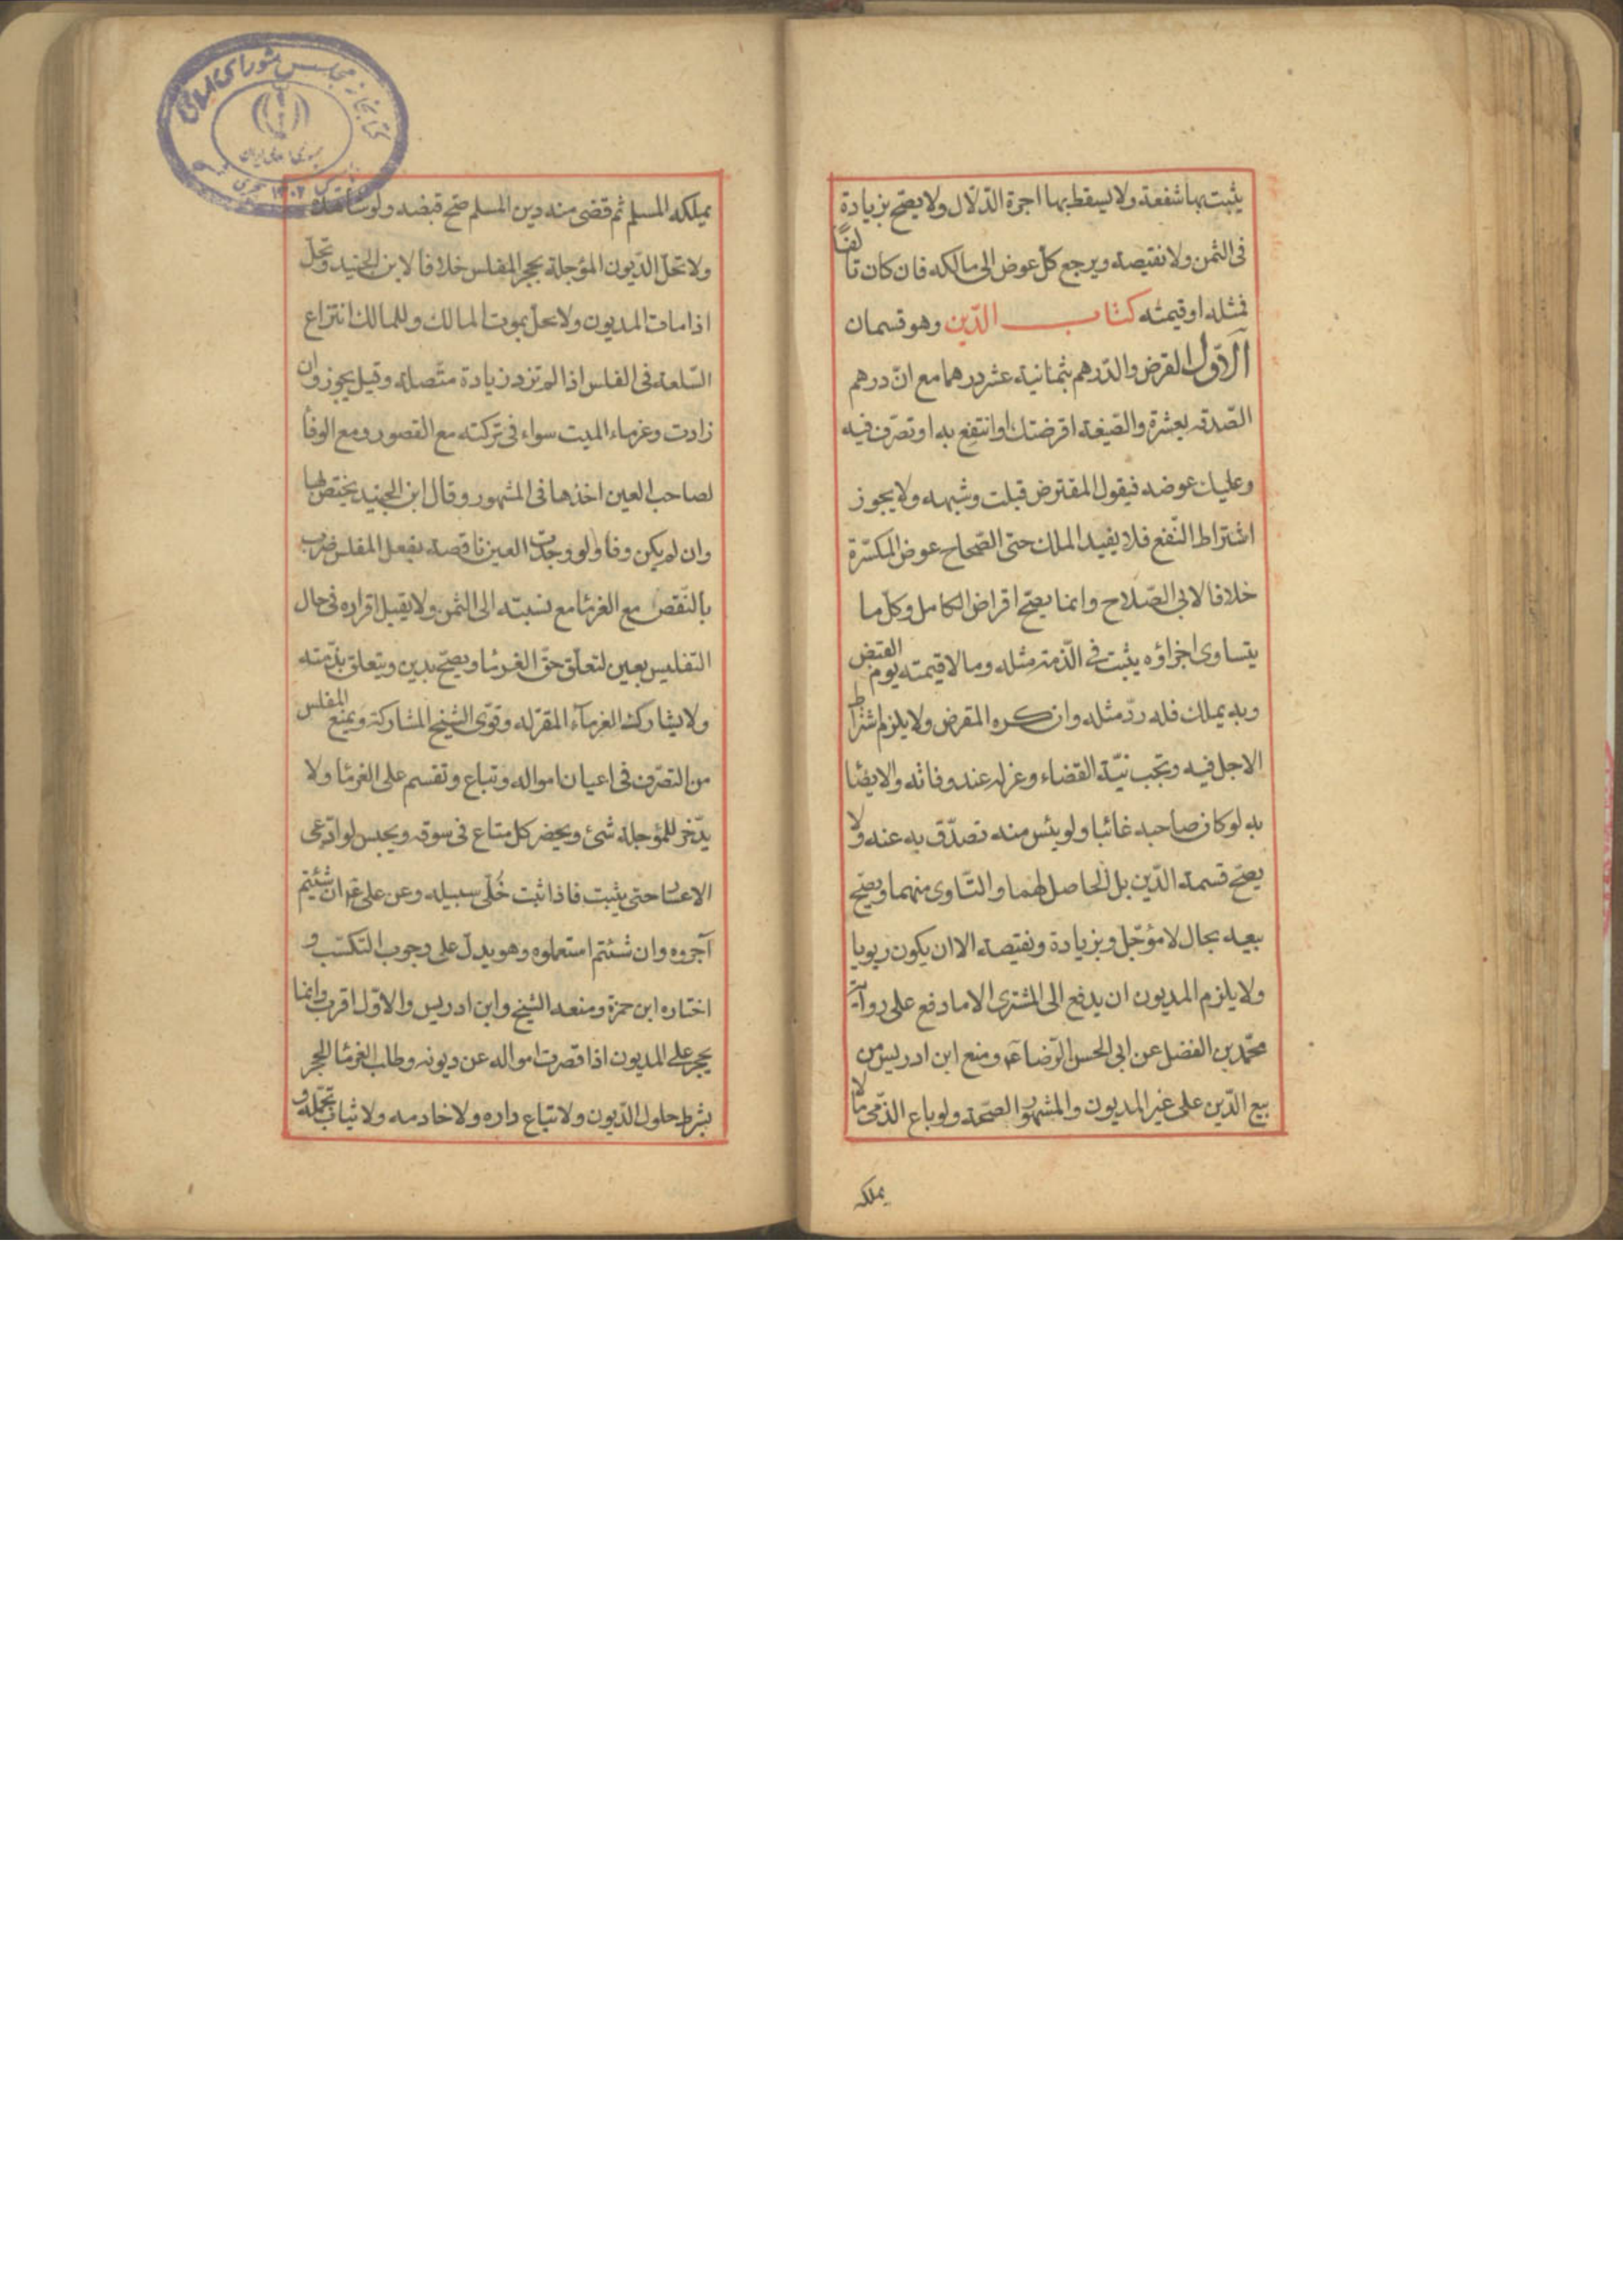 يثبت بها شفعة ولا يسقط بها اجرة الدّلّال ولا يصحّ بزيادة
فى الثمن ولا نقيصة ويرجع كلّ عوض الى مالكه فان كان تالفًا
فمثله او قيمته كتاب الدّين وهو قسمان
الاوّل القرض والدّرهم بثمانية عشر درهما مع انّ درهم
الصّدقه بعشرة والصّيغة اقرضتك او انتفع به او تصرّف فيه
وعليك عوضه فيقول المقترض قبلت وشبهه ولا يجوز
اشتراط النّفع فلا يفيد الملك حتى الصّحاح عوض المكسّرة
خلافا لابى الصّلاح وانما يصحّ اقراض الكامل وكلّ ما
يتساوى اجزاؤه يثبت فى الذّمّة مثله وما لا قيمته يوم القبض
وبه يملك فله ردّ مثله وان كره المقرض ولا يلزم اشتراط
الاجل فيه وتجب نيّة القضاء وعزله عند وفاته والايضا
به لو كان صاحبه غائبا ولو يئس منه تصدّق به عنه ولا
يصحّ قسمة الدّين بل الحاصل لهما والتّاوى منهما ويصحّ
بيعه بحال لا مؤجّل وبزيادة ونقيصة الا ان يكون ربويا
ولا يلزم المديون ان يدفع الى المشترى الا ما دفع على رواية
محمّد بن الفضل عن ابى الحسن الرّضا ع ومنع ابن ادريس من
بيع الدّين على غير المديون والمشهور الصحّة ولو باع الذّمّى ما لا
يملكه
يملكه المسلم ثم قضى منه دين المسلم صحّ قبضه ولو شاهده
ولا تحلّ الدّيون المؤجلة بحجر المفلس خلافا لابن الجنيد وتحلّ
اذا مات المديون ولا يحلّ بموت المالك وللمالك انتزاع
السّلعة فى الفلس اذا لم تزد زيادة متّصلة وقيل يجوز وان
زادت وغرماء الميت سواء فى تركته مع القصور ومع الوفأ
لصاحب العين اخذها فى المشهور وقال ابن الجنيد يختصّ بها
وان لم يكن وفأ ولو وجدت العين ناقصة بفعل المفلس ضرب
بالنّقص مع الغرمأ مع نسبته الى الثمن ولا يقبل اقراره فى حال
التفليس بعين لتعلّق حقّ الغرمأ ويصحّ بدين ويتعلق بذمّته
ولا يشارك الغرمآء المقرّ له وقوّى الشيخ المشاركة ويمنع المفلس
من التصرّف فى اعيان امواله وتباع وتقسم على الغرمأ ولا
يدّخر للمؤجلة شئ ويحضر كل متاع فى سوقه ويحبس لو ادّعى
الاعسار حتى يثبت فاذا ثبت خُلّى سبيله وعن على ع ان شئتم
آجروه وان شئتم استعملوه وهو يدلّ على وجوب التكسّب و
اختاره ابن حمزة ومنعه الشيخ وابن ادريس والاوّل اقرب وانما
يحجر على المديون اذا قصرت امواله عن ديونه وطلب الغرمأ الحجر
بشرط حلول الدّيون ولا تباع داره ولا خادمه ولا ثياب تجمّله و
كتابخانه مجلس شورای اسلامی
جمهوری اسلامی ایران